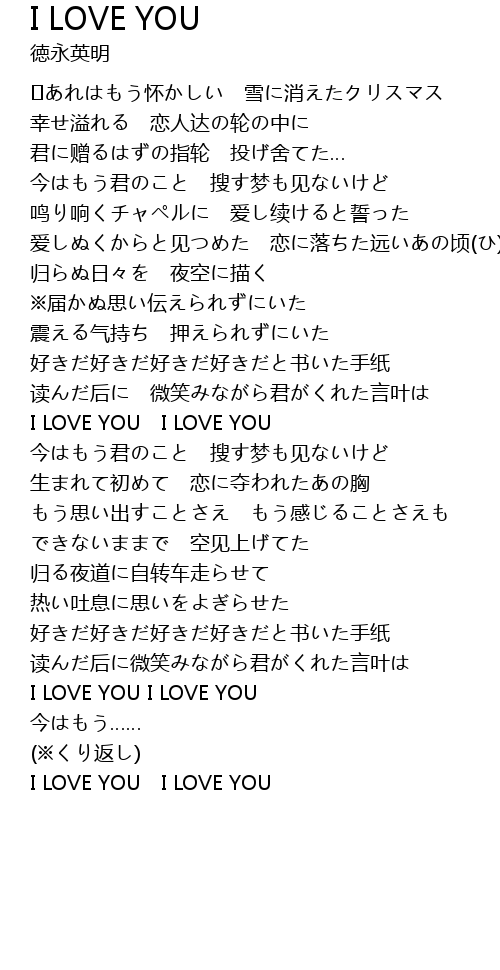 I LOVE YOU
徳永英明
あれはもう怀かしい　雪に消えたクリスマス
幸せ溢れる　恋人达の轮の中に
君に赠るはずの指轮　投げ舍てた…
今はもう君のこと　搜す梦も见ないけど
鸣り响くチャペルに　爱し续けると誓った
爱しぬくからと见つめた　恋に落ちた远いあの顷(ひ)
归らぬ日々を　夜空に描く
※届かぬ思い伝えられずにいた
震える气持ち　押えられずにいた
好きだ好きだ好きだ好きだと书いた手纸
读んだ后に　微笑みながら君がくれた言叶は
I LOVE YOU　I LOVE YOU
今はもう君のこと　搜す梦も见ないけど
生まれて初めて　恋に夺われたあの胸
もう思い出すことさえ　もう感じることさえも
できないままで　空见上げてた
归る夜道に自转车走らせて
热い吐息に思いをよぎらせた
好きだ好きだ好きだ好きだと书いた手纸
读んだ后に微笑みながら君がくれた言叶は
I LOVE YOU I LOVE YOU
今はもう……
(※くり返し)
I LOVE YOU　I LOVE YOU